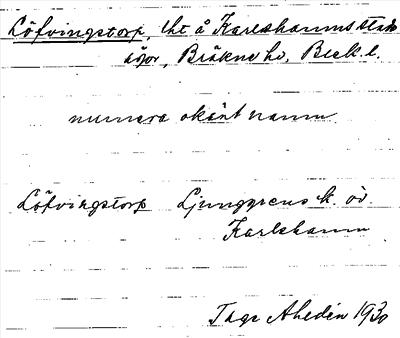 Löfvingstorp, lht å Karlshamns stads
ägor, Bräkne hd, Blek. l.
numera okänt namn.
Löfvingstorp Ljunggrens k. öv.
Karlshamn
Tage Ahldén 1930